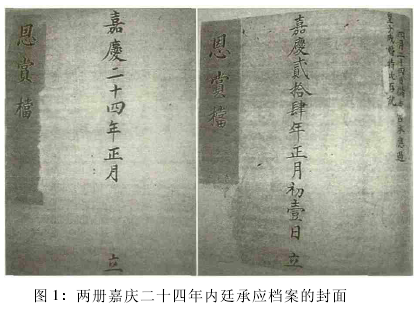 嘉慶二十四年正月 立
恩賞檔
四月二十四日
皇子成
嘉慶貳拾肆年正月初壹日 立
恩賞檔
图 1：两册嘉庆二十四年内廷承应档案的封面